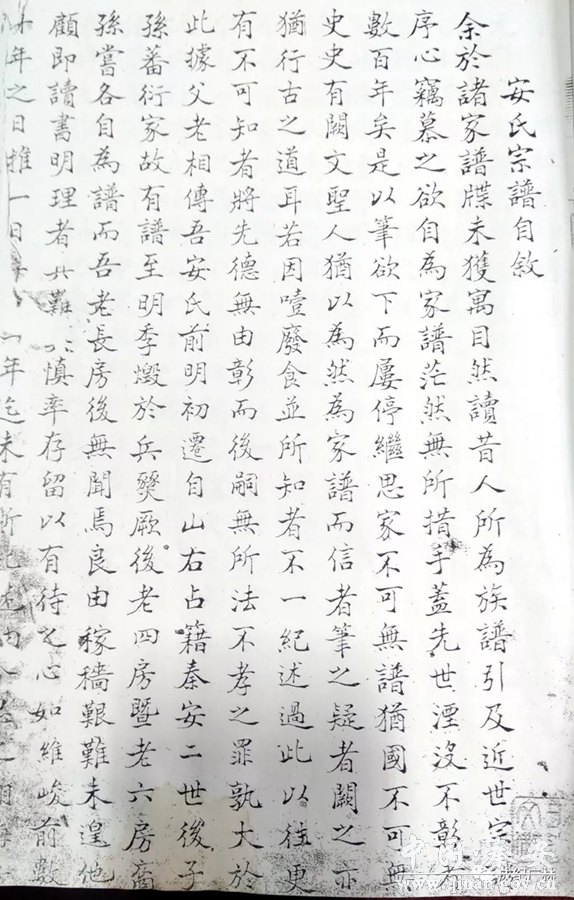 安氏宗譜自敘
余於諸家譜牒未獲寓目然讀昔人所為族譜引及近世宗譜
序心竊慕之欲自為家譜茫然無所措手蓋先世湮沒不彰者
數百年矣是以筆欲下而屢停繼思家不可無譜猶國不可無
史史有闕文聖人猶以為然為家譜而信者筆之疑者闕之亦
猶行古之道耳若因噎廢食並所知者不一紀述過此以往更
有不可知者將先德無由彰而後嗣無所法不孝之罪孰大於
此據父老相傳吾安氏前明初遷自山右占籍秦安二世後子
孫蕃衍家故有譜至明季燬於兵燹厥後老四房暨老六房裔
孫嘗各自為譜而吾老長房後無聞焉良由稼穡艱難未遑他
顧即讀書明理者難慎率存留以有待之心如維峻前數
年之日推一日年迄未有所
中国秦安
www.qinan.gov.cn